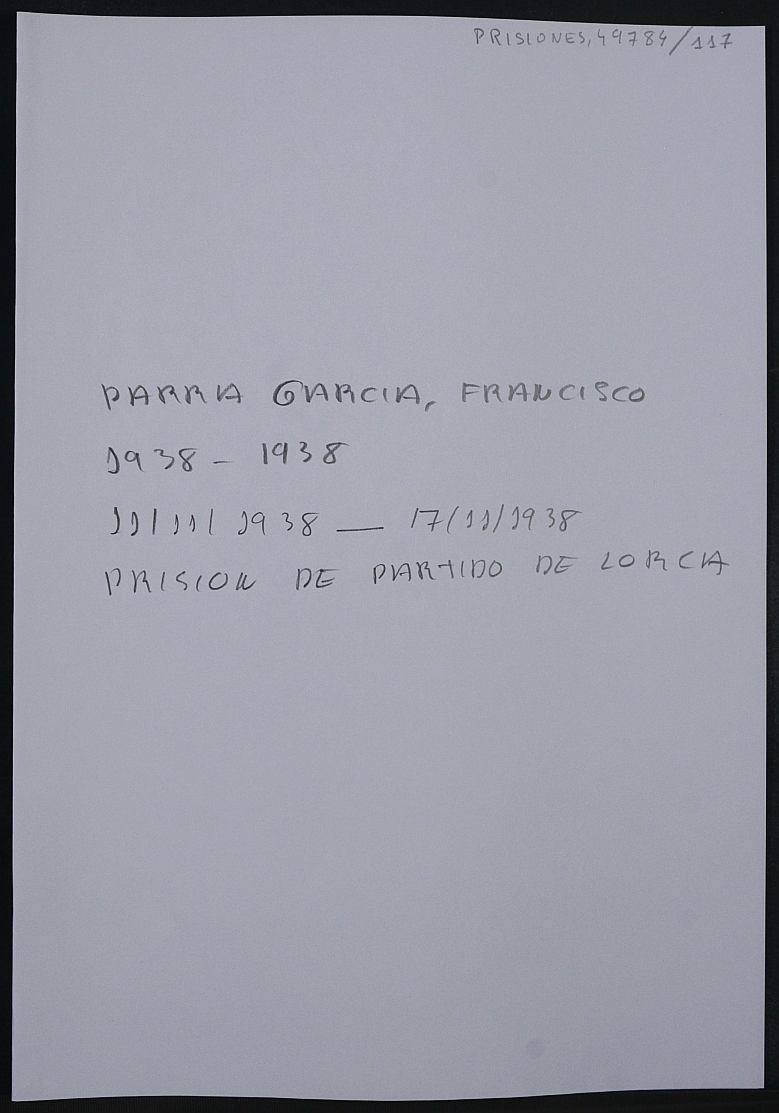 PRISIONES, 49784/117
PARRA GARCIA, FRANCISCO
1938 - 1938
11/11/1938 — 17/11/1938
PRISION DE PARTIDO DE LORCA